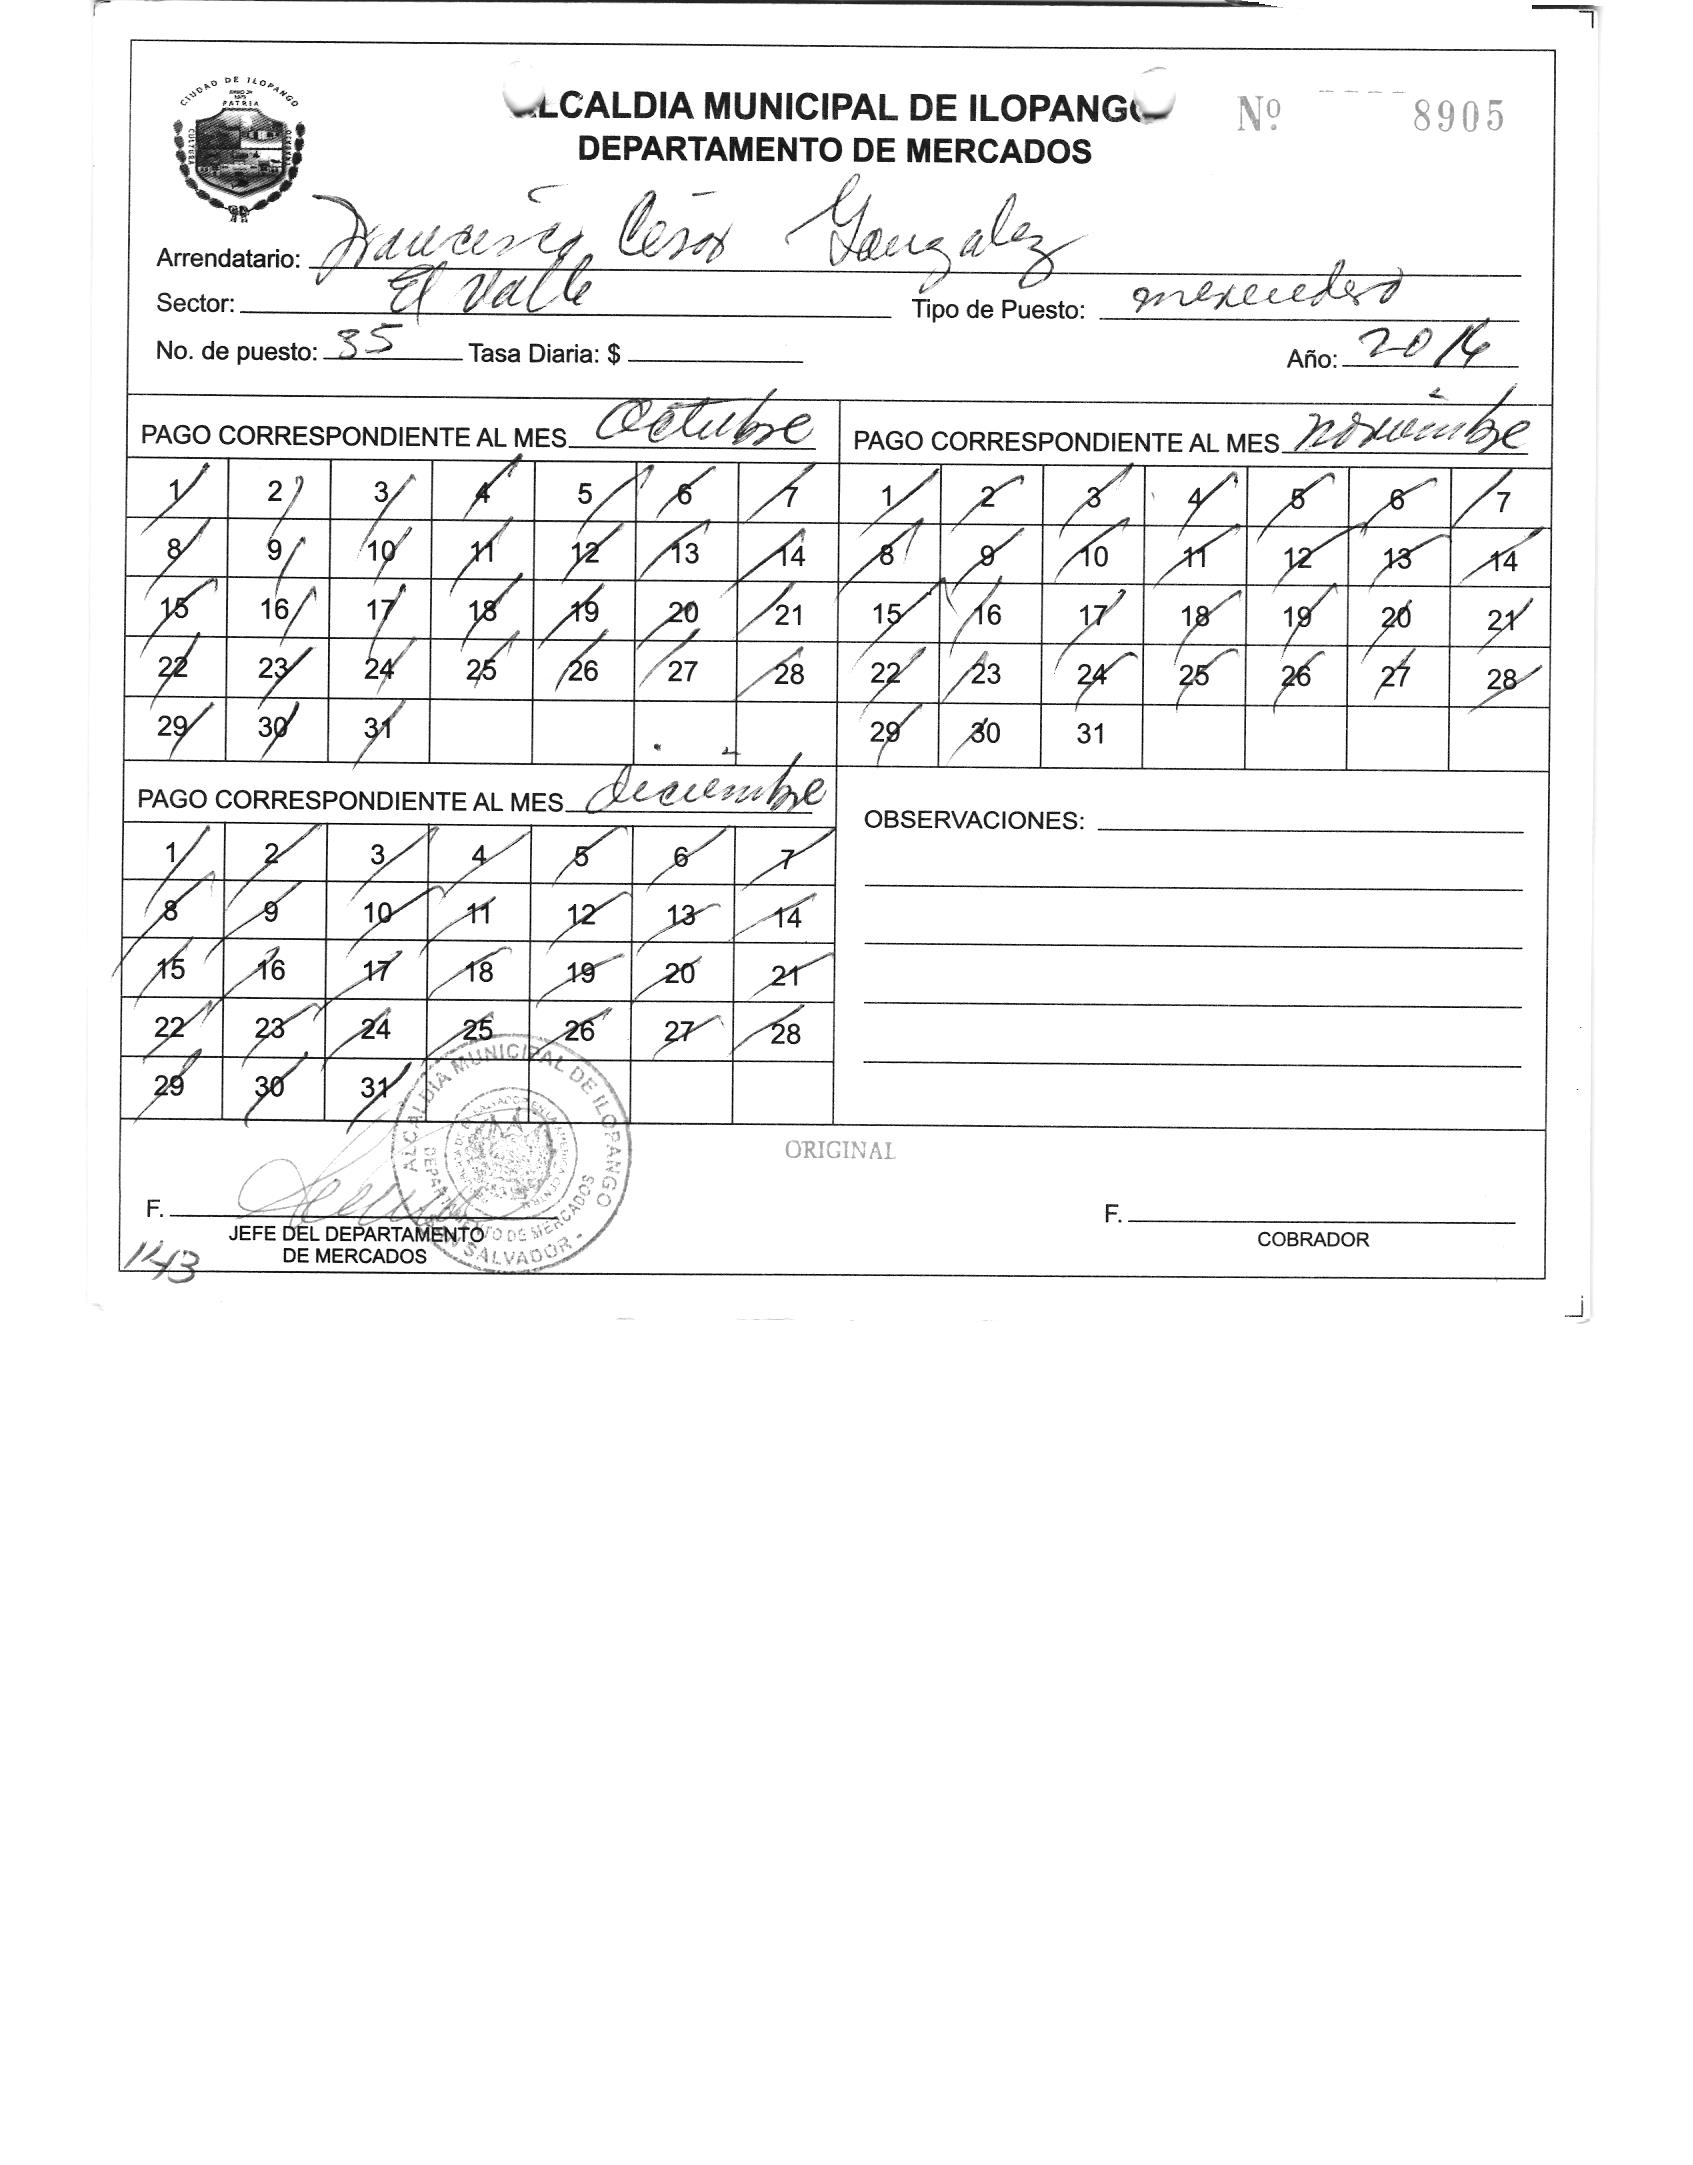 CIUDAD DE ILOPANGO
PATRIA
CULTURA
ALCALDIA MUNICIPAL DE ILOPANGO
Nº 8905
DEPARTAMENTO DE MERCADOS
Arrendatario: Francisco César Gonzalez
Sector: El Valle Tipo de Puesto: merendero
No. de puesto: 35 Tasa Diaria: $ Año: 2014
PAGO CORRESPONDIENTE AL MES Octubre
1 2 3 4 5 6 7
8 9 10 11 12 13 14
15 16 17 18 19 20 21
22 23 24 25 26 27 28
29 30 31
PAGO CORRESPONDIENTE AL MES noviembre
1 2 3 4 5 6 7
8 9 10 11 12 13 14
15 16 17 18 19 20 21
22 23 24 25 26 27 28
29 30 31
PAGO CORRESPONDIENTE AL MES diciembre
1 2 3 4 5 6 7
8 9 10 11 12 13 14
15 16 17 18 19 20 21
22 23 24 25 26 27 28
29 30 31
OBSERVACIONES:
ALCALDIA MUNICIPAL DE ILOPANGO
DEPARTAMENTO DE MERCADOS
SAN SALVADOR -
ORIGINAL
F.
JEFE DEL DEPARTAMENTO
DE MERCADOS
F.
COBRADOR